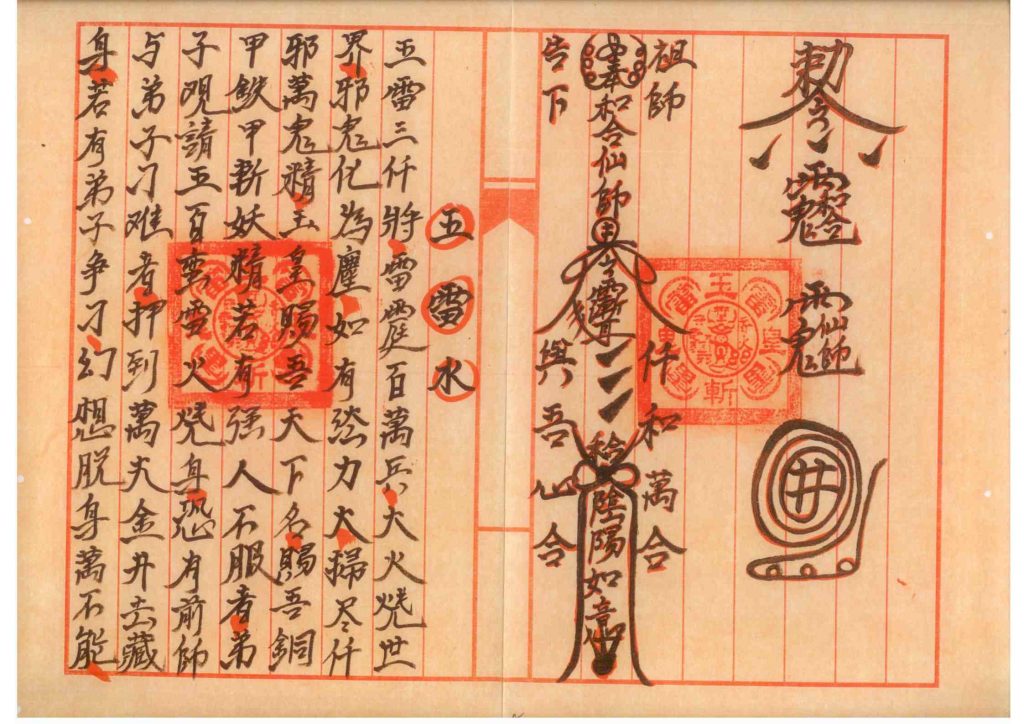 敕令
和合
仙師
井
祖師 仟和萬合
奉和合仙師 陰陽如意
告下 與吾心合
五雷水
五雷三仟將雷霆百萬兵大火燒世
界邪鬼化為塵如有力大掃尽仟
邪萬鬼精玉皇賜吾天下名賜吾銅
甲鉄甲斬妖精若有强人不服者弟
子覌請五百雪火燒身恐有前師
与弟子刁难者押到萬丈金井去藏
身若有弟子争刁幻想脱身萬不能